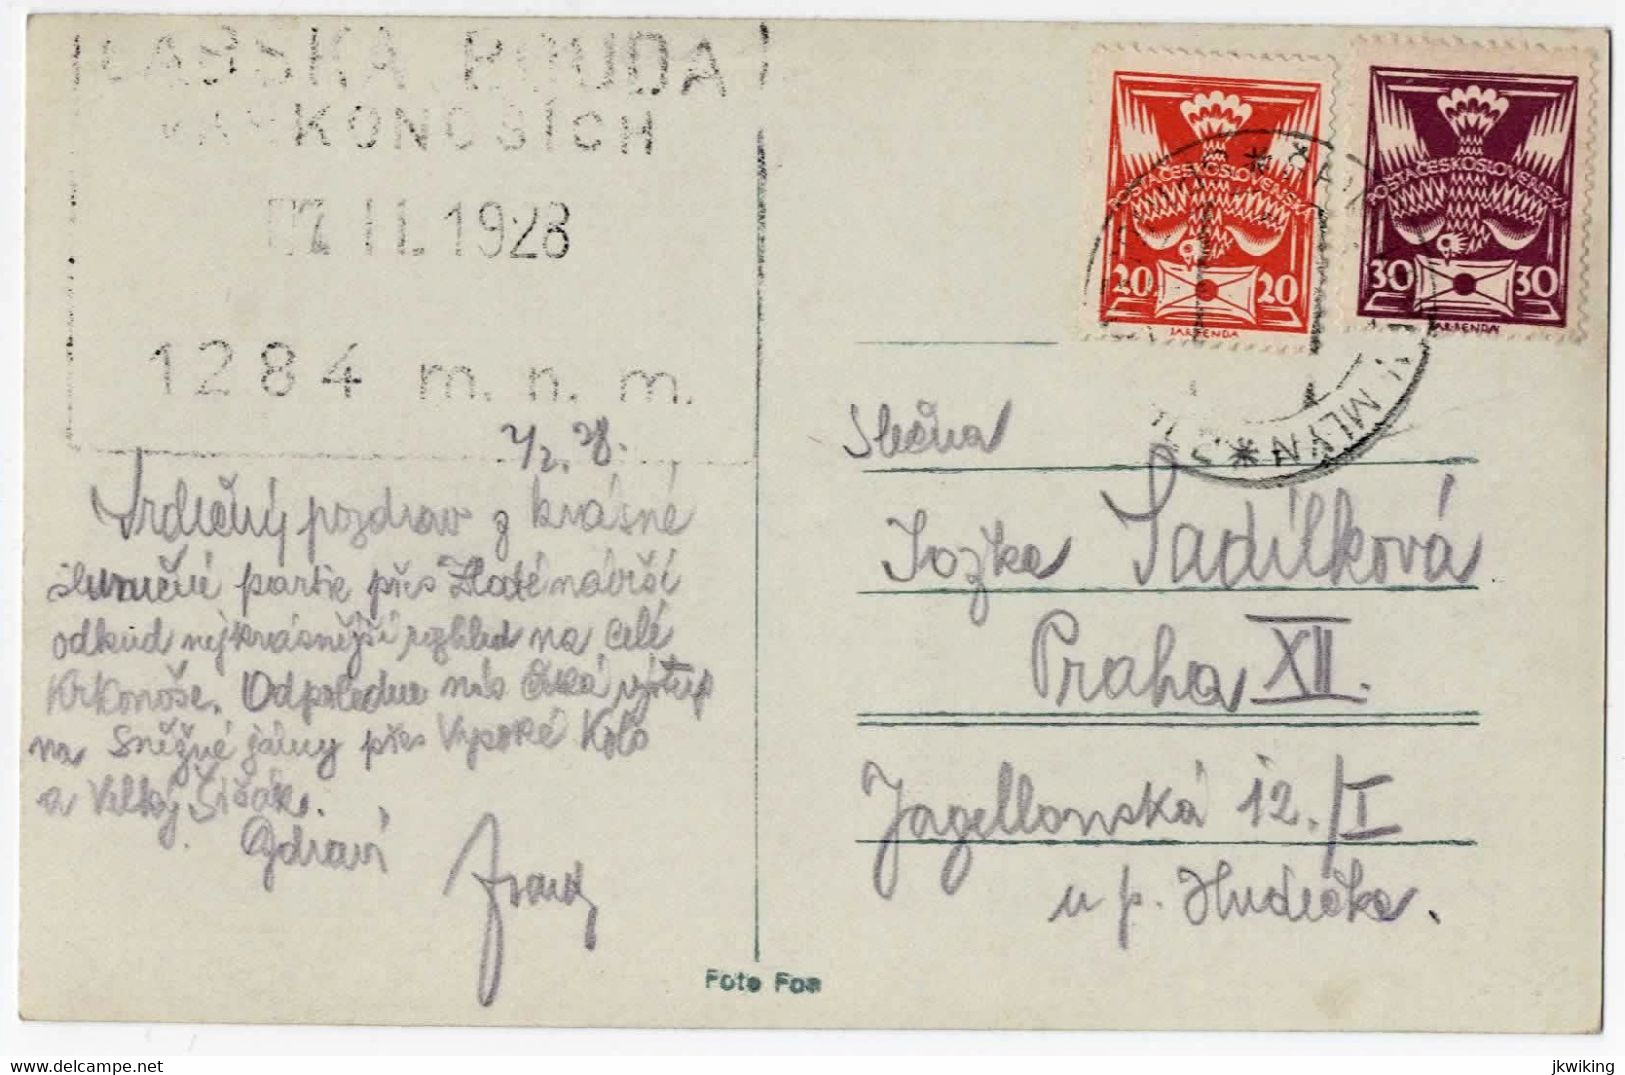 LABSKÁ BOUDA
KRKONOŠÍCH
7. II. 1928
1284 m. n. m.
7/2. 28.
Srdečný pozdrav z krásné
slunečné partie přes Zlaté návrší
odkud nejkrásnější rozhled na celé
Krkonoše. Odpoledne nás čeká výstup
na Sněžné jámy přes Vysoké Kolo
a Velký Šišák.
Zdraví
POŠTA ČESKOSLOVENSKÁ
20 20
JAR.BENDA
POŠTA ČESKOSLOVENSKÁ
30 30
JAR.BENDA
MLÝN
Slečna
Jozka Sadílková
Praha XII.
Jagellonská 12./I
u p. Hudečka.
Foto Fon
jkwiking